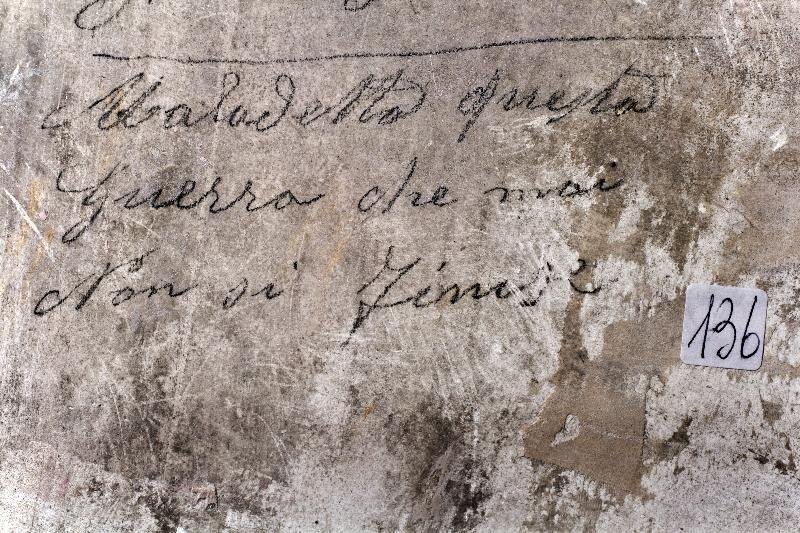 Maladetta questa
Guerra che mai
Non si finisce
136